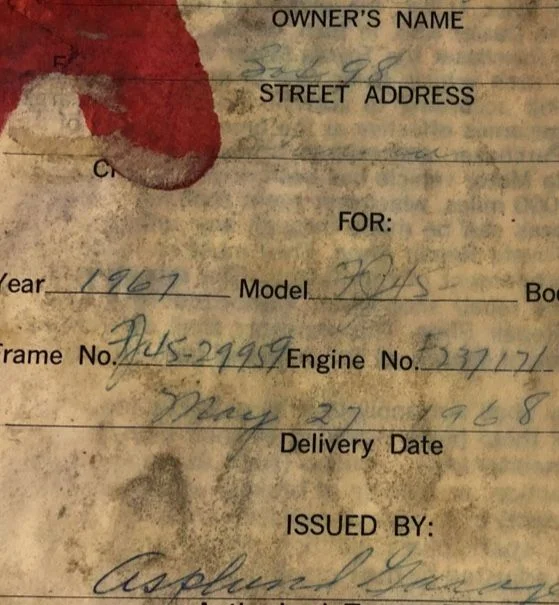 OWNER'S NAME
98
STREET ADDRESS
FOR:
Year 1967 Model FJ45 Bo
Frame No. FJ45-29959 Engine No. F237171
May 27 1968
Delivery Date
ISSUED BY:
Asplund Garag